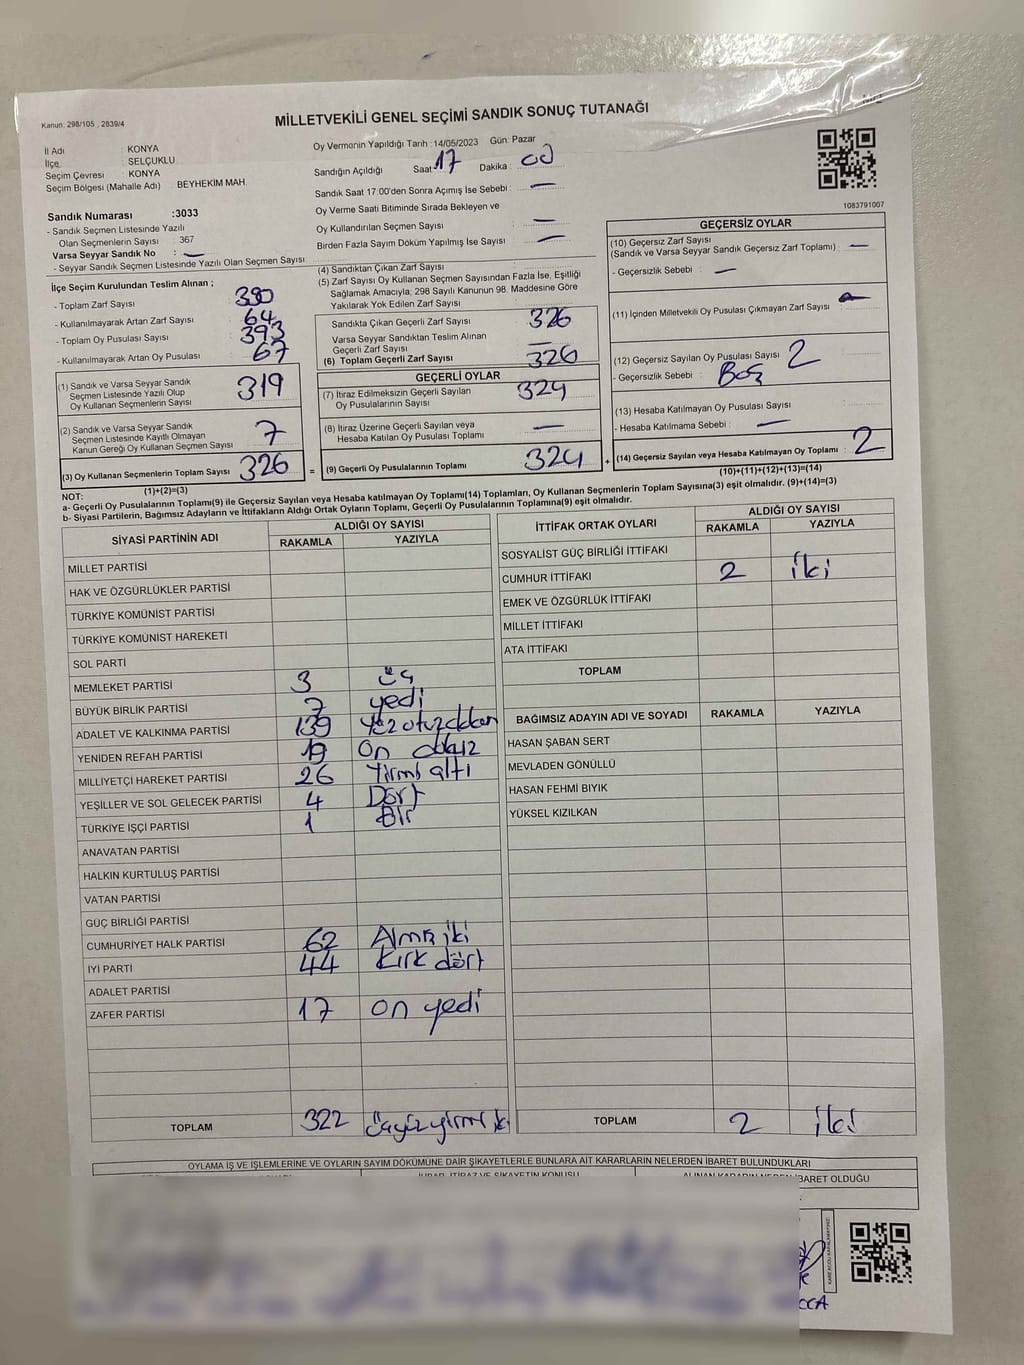 Kanun: 298/105 , 2839/4
MİLLETVEKİLİ GENEL SEÇİMİ SANDIK SONUÇ TUTANAĞI
İl Adı : KONYA
İlçe : SELÇUKLU
Seçim Çevresi : KONYA
Seçim Bölgesi (Mahalle Adı) BEYHEKİM MAH.
Sandık Numarası :3033
- Sandık Seçmen Listesinde Yazılı
Olan Seçmenlerin Sayısı : 367
Varsa Seyyar Sandık No : —
- Seyyar Sandık Seçmen Listesinde Yazılı Olan Seçmen Sayısı
Oy Vermenin Yapıldığı Tarih :14/05/2023 Gün: Pazar
Sandığın Açıldığı Saat: 17 Dakika : 00
Sandık Saat 17:00'den Sonra Açımış İse Sebebi : —
Oy Verme Saati Bitiminde Sırada Bekleyen ve
Oy Kullandırılan Seçmen Sayısı —
Birden Fazla Sayım Döküm Yapılmış İse Sayısı —
1083791007
İlçe Seçim Kurulundan Teslim Alınan ;
- Toplam Zarf Sayısı : 390
- Kullanılmayarak Artan Zarf Sayısı : 64
- Toplam Oy Pusulası Sayısı : 393
- Kullanılmayarak Artan Oy Pusulası : 67
(1) Sandık ve Varsa Seyyar Sandık
Seçmen Listesinde Yazılı Olup
Oy Kullanan Seçmenlerin Sayısı 319
(2) Sandık ve Varsa Seyyar Sandık
Seçmen Listesinde Kayıtlı Olmayan
Kanun Gereği Oy Kullanan Seçmen Sayısı 7
(3) Oy Kullanan Seçmenlerin Toplam Sayısı 326
(1)+(2)=(3)
(4) Sandıktan Çıkan Zarf Sayısı
(5) Zarf Sayısı Oy Kullanan Seçmen Sayısından Fazla İse, Eşitliği
Sağlamak Amacıyla, 298 Sayılı Kanunun 98. Maddesine Göre
Yakılarak Yok Edilen Zarf Sayısı
Sandıkta Çıkan Geçerli Zarf Sayısı 326
Varsa Seyyar Sandıktan Teslim Alınan
Geçerli Zarf Sayısı —
(6) Toplam Geçerli Zarf Sayısı 326
GEÇERLİ OYLAR
(7) İtiraz Edilmeksizin Geçerli Sayılan
Oy Pusulalarının Sayısı 324
(8) İtiraz Üzerine Geçerli Sayılan veya
Hesaba Katılan Oy Pusulası Toplamı —
= (9) Geçerli Oy Pusulalarının Toplamı 324 +
GEÇERSİZ OYLAR
(10) Geçersiz Zarf Sayısı
(Sandık ve Varsa Seyyar Sandık Geçersiz Zarf Toplamı) : —
- Geçersizlik Sebebi : —
(11) İçinden Milletvekili Oy Pusulası Çıkmayan Zarf Sayısı
(12) Geçersiz Sayılan Oy Pusulası Sayısı : 2
- Geçersizlik Sebebi : Boş
(13) Hesaba Katılmayan Oy Pusulası Sayısı
- Hesaba Katılmama Sebebi : —
(14) Geçersiz Sayılan veya Hesaba Katılmayan Oy Toplamı : 2
(10)+(11)+(12)+(13)=(14)
NOT:
a- Geçerli Oy Pusulalarının Toplamı(9) ile Geçersiz Sayılan veya Hesaba katılmayan Oy Toplamı(14) Toplamları, Oy Kullanan Seçmenlerin Toplam Sayısına(3) eşit olmalıdır. (9)+(14)=(3)
b- Siyasi Partilerin, Bağımsız Adayların ve İttifakların Aldığı Ortak Oyların Toplamı, Geçerli Oy Pusulalarının Toplamına(9) eşit olmalıdır.
SİYASİ PARTİNİN ADI ALDIĞI OY SAYISI
RAKAMLA YAZIYLA
MİLLET PARTİSİ
HAK VE ÖZGÜRLÜKLER PARTİSİ
TÜRKİYE KOMÜNİST PARTİSİ
TÜRKİYE KOMÜNİST HAREKETİ
SOL PARTİ
MEMLEKET PARTİSİ 3 üç
BÜYÜK BİRLİK PARTİSİ 7 yedi
ADALET VE KALKINMA PARTİSİ 139
YENİDEN REFAH PARTİSİ 19 On dokuz
MİLLİYETÇİ HAREKET PARTİSİ 26 Yirmi altı
YEŞİLLER VE SOL GELECEK PARTİSİ 4 Dört
TÜRKİYE İŞÇİ PARTİSİ 1 Bir
ANAVATAN PARTİSİ
HALKIN KURTULUŞ PARTİSİ
VATAN PARTİSİ
GÜÇ BİRLİĞİ PARTİSİ
CUMHURİYET HALK PARTİSİ 62 Almış iki
İYİ PARTİ 44 Kırk dört
ADALET PARTİSİ
ZAFER PARTİSİ 17 on yedi
TOPLAM 322
İTTİFAK ORTAK OYLARI ALDIĞI OY SAYISI
RAKAMLA YAZIYLA
SOSYALİST GÜÇ BİRLİĞİ İTTİFAKI
CUMHUR İTTİFAKI 2 iki
EMEK VE ÖZGÜRLÜK İTTİFAKI
MİLLET İTTİFAKI
ATA İTTİFAKI
TOPLAM
BAĞIMSIZ ADAYIN ADI VE SOYADI RAKAMLA YAZIYLA
HASAN ŞABAN SERT
MEVLADEN GÖNÜLLÜ
HASAN FEHMİ BIYIK
YÜKSEL KIZILKAN
TOPLAM 2 iki
OYLAMA İŞ VE İŞLEMLERİNE VE OYLARIN SAYIM DÖKÜMÜNE DAİR ŞİKAYETLERLE BUNLARA AİT KARARLARIN NELERDEN İBARET BULUNDUKLARI
İTİRAZ VE ŞİKAYETİN KONUSU ALINAN KARARIN NEDEN İBARET OLDUĞU